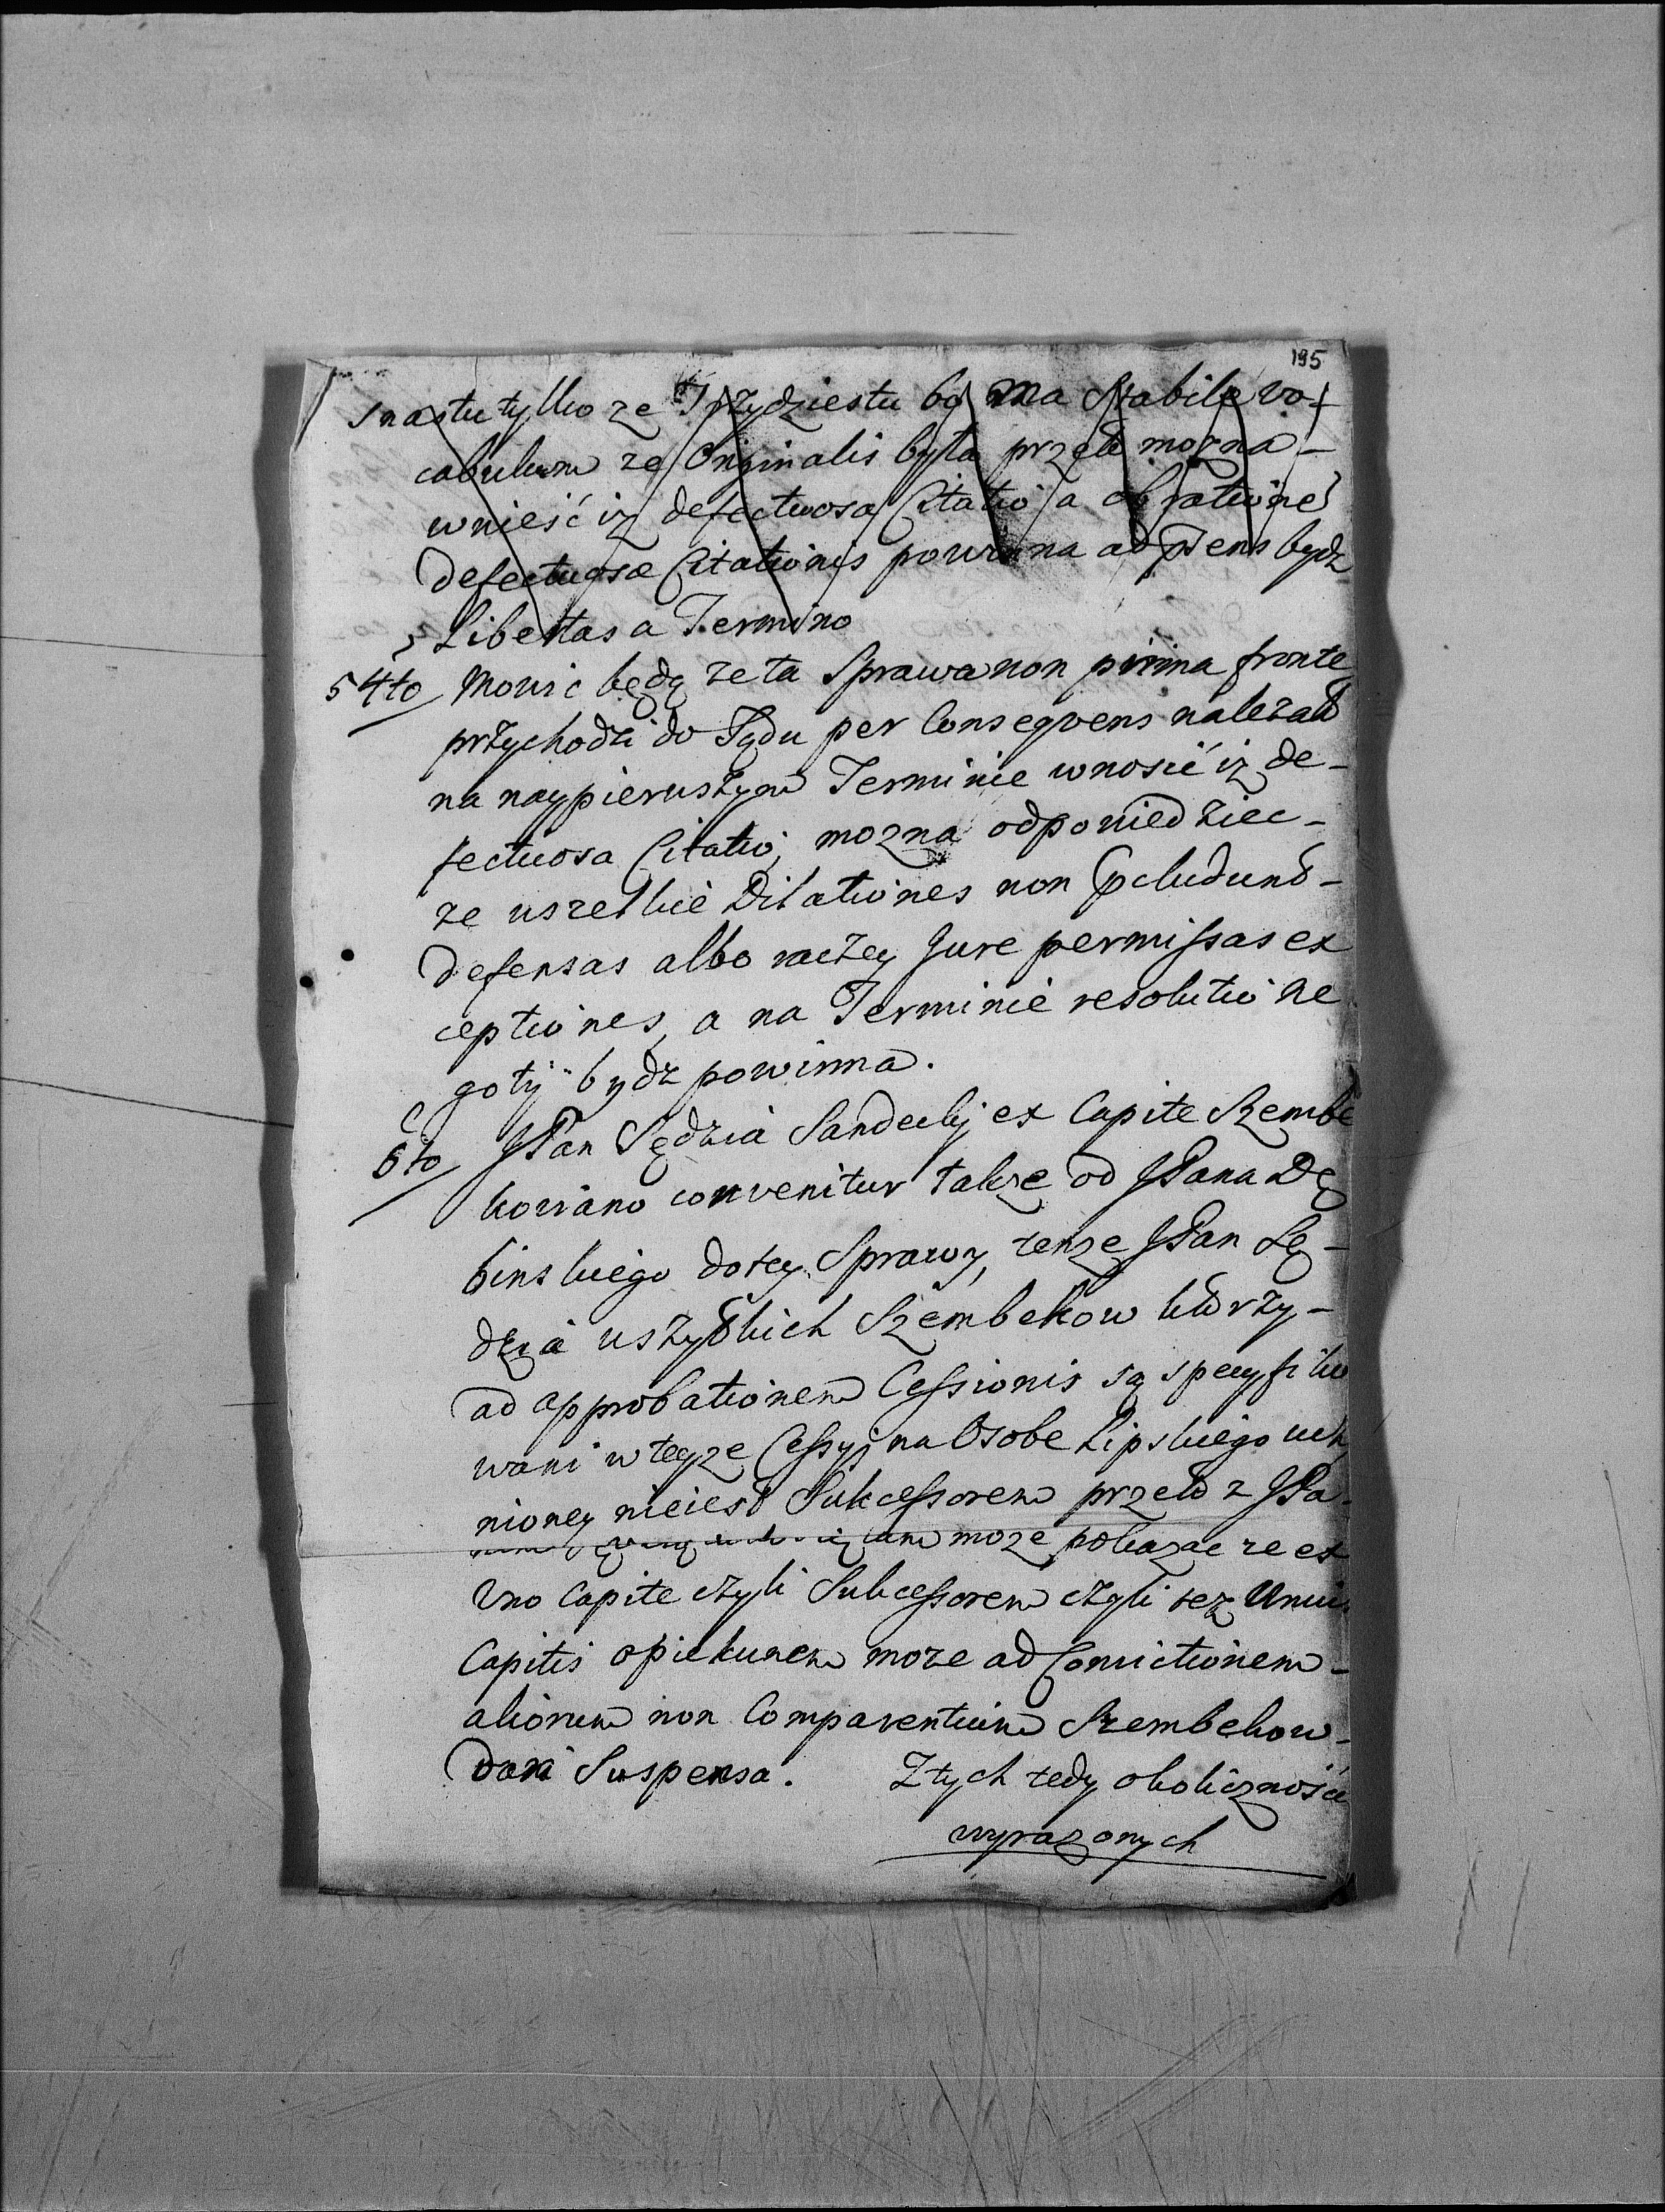 195
snastu tylko ze Trzydziestu bo ma Stabile vo-
cabulum ze Originalis była przeto mozna-
wnieść iz defectuosa Citatio a ob ratione
defectuosæ Citationis powinna ad Pens bydz
Libertas a Termino
5 4to Mowic będą ze ta Sprawa non prima fronte
przychodzi do Sądu per Conseqvens nalezało
na naypierwszym Terminie wnosić iz de-
fectuosa Citatio, mozna odpowiedziec-
ze wszelkie Dilationes non præcludunt-
defensas albo raczey Jure permissas ex
ceptiones, a na Terminie resolutio ne
gotÿ bydz powinna.
6to JPan Sędzia Sandecki ex Capite Szembe
kowiano convenitur takze od JPana Dę
binskiego do tey Sprawy, tenze JPan Sę-
dzia wszystkich Szembekow ktorzy-
ad approbationem Cessionis są specyfiko
wani w teyze Cessyj na Osobe Lipskiego uczy
nioney nieiest Sukcessorem przeto z JPa-
moze pokazac ze ex
Uno Capite czyli Sukcessorem czyli tez Unius
Capitis opiekunem moze ad Convictionem-
aliorum non Comparentium Szembekow-
dari Suspensa. Z tych tedy okoliczności
wyrazonych